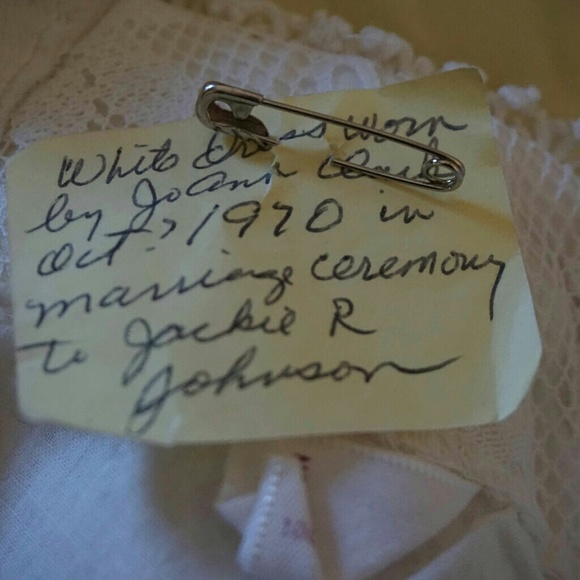 White Dress worn
by JoAnn
Oct., 1970 in
marriage ceremony
to Jackie R
Johnson